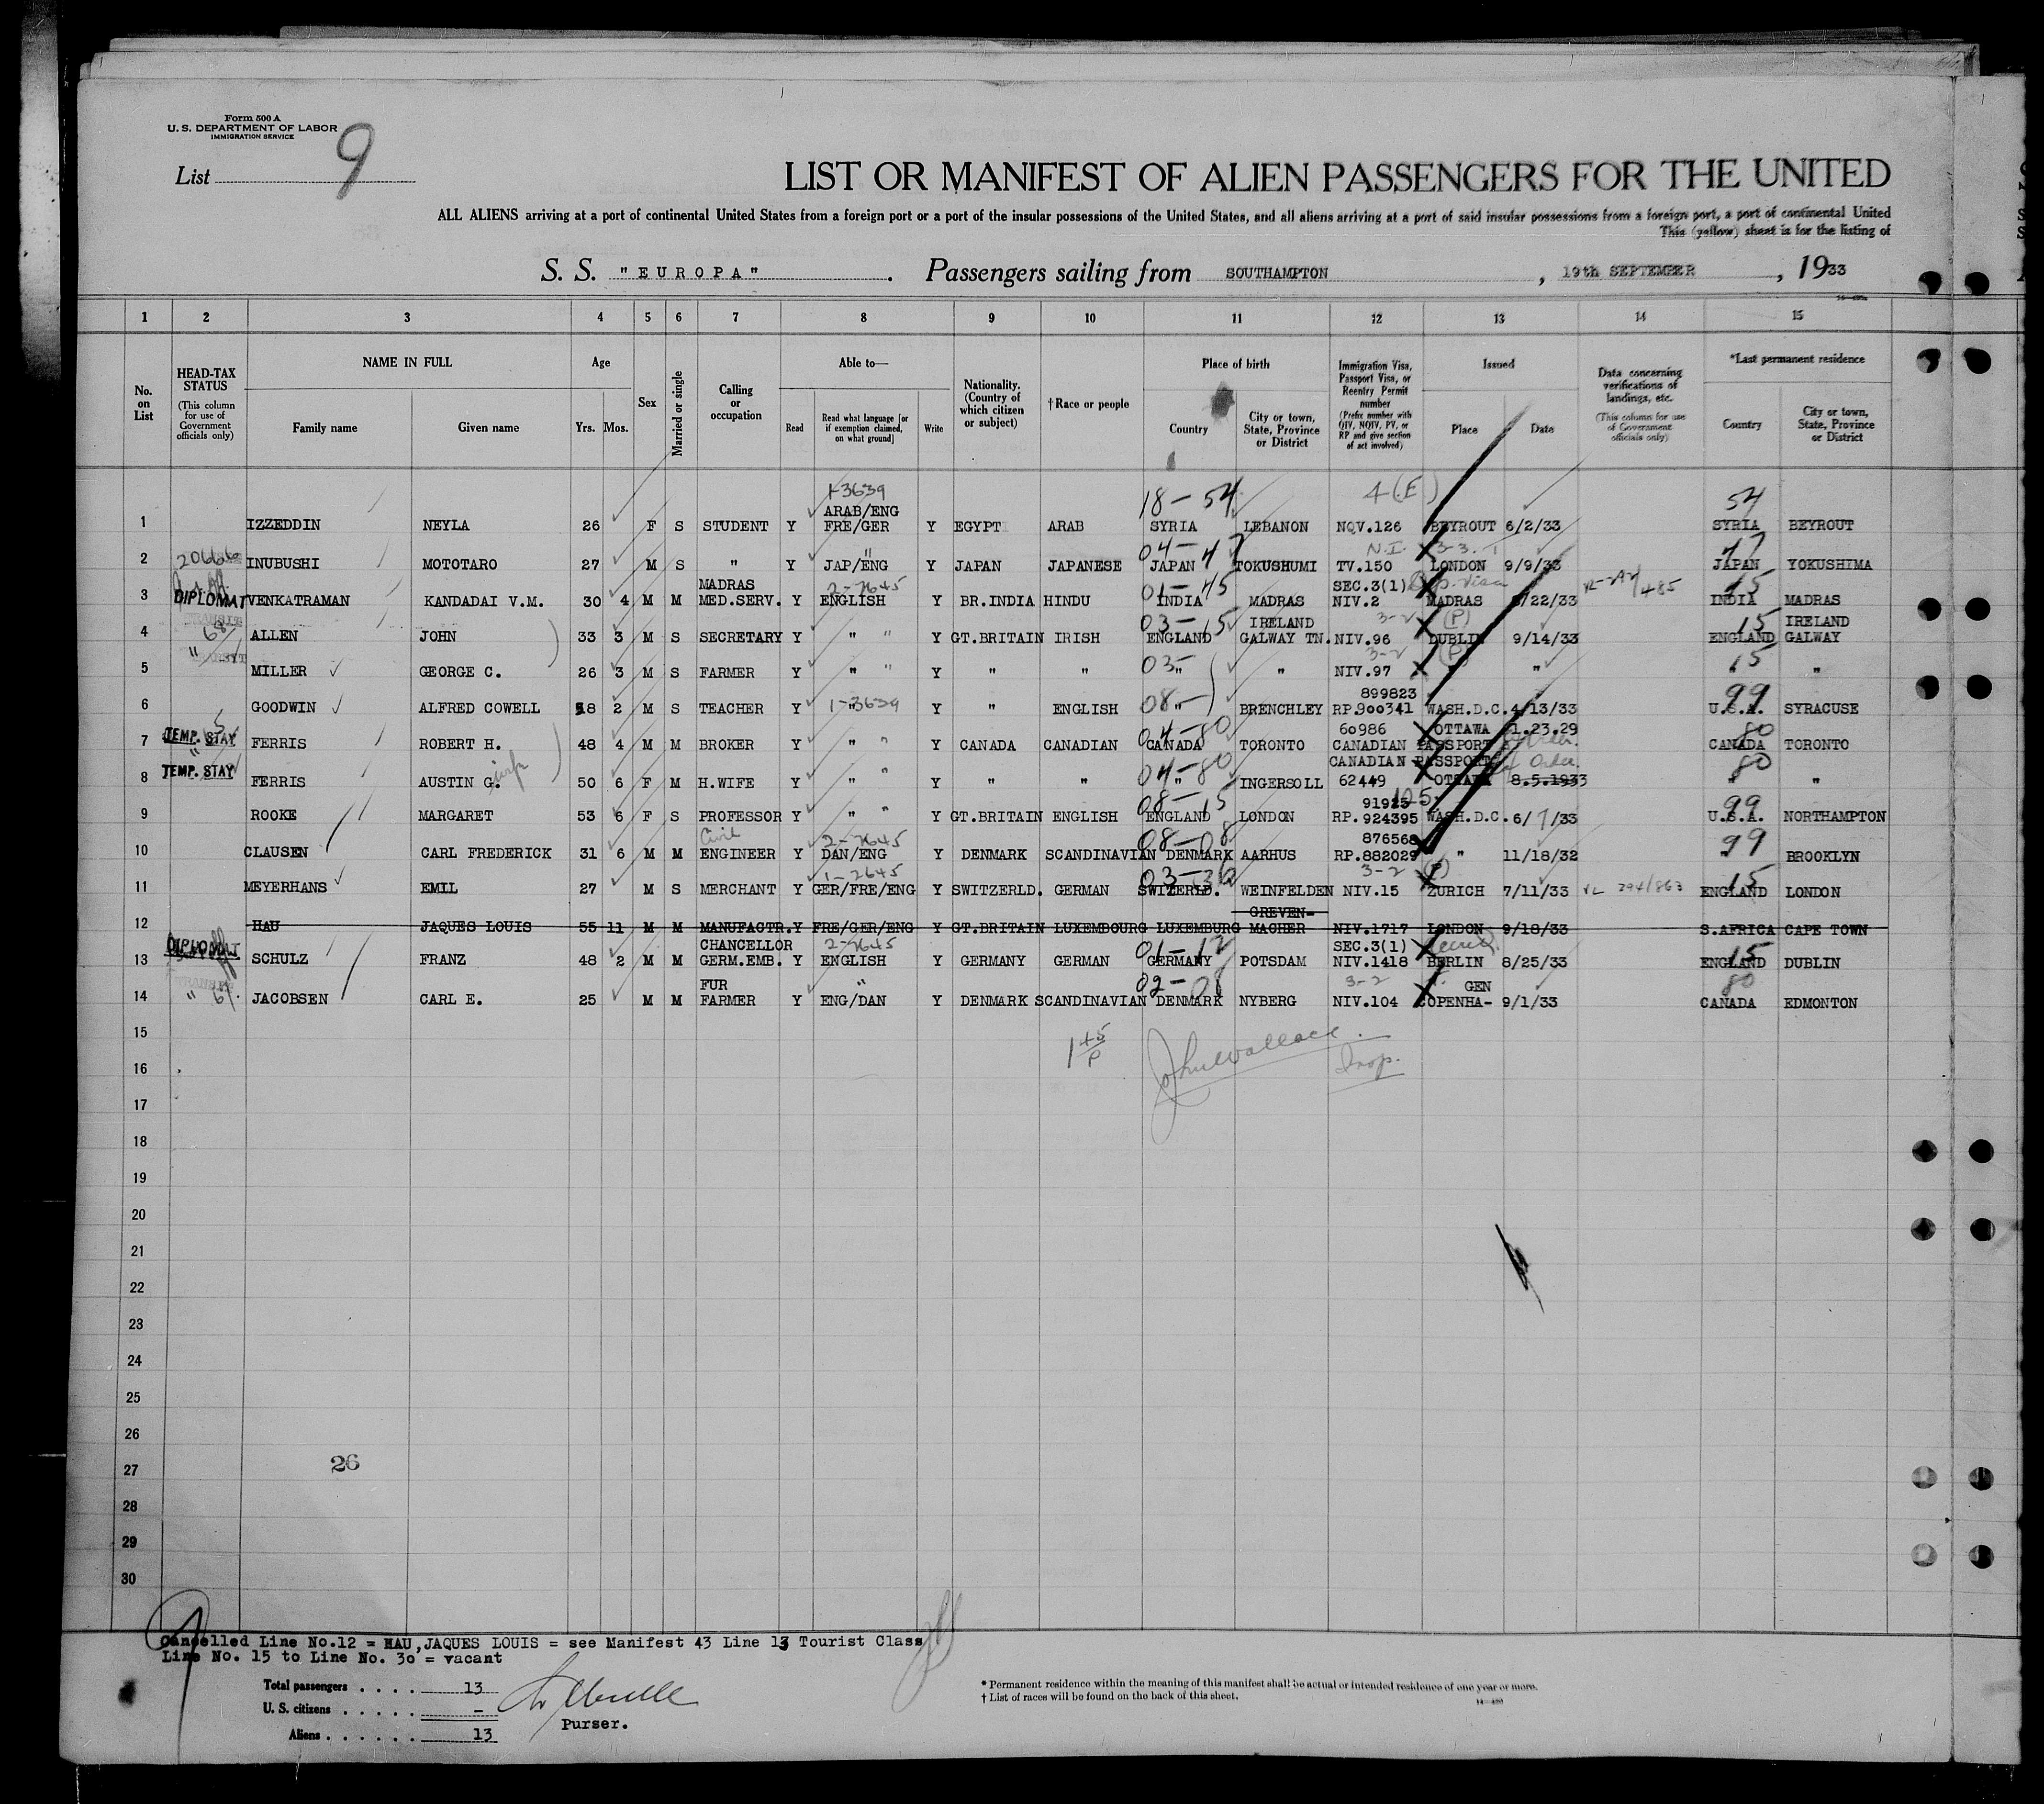 Form 500 A
U. S. DEPARTMENT OF LABOR
IMMIGRATION SERVICE
List 9
LIST OR MANIFEST OF ALIEN PASSENGERS FOR THE UNITED
ALL ALIENS arriving at a port of continental United States from a foreign port or a port of the insular possessions of the United States, and all aliens arriving at a port of said insular possessions from a foreign port, a port of continental United
This (yellow) sheet is for the listing of
S. S. "EUROPA". Passengers sailing from SOUTHAMPTON, 19th SEPTEMBER, 1933
1 2 3 4 5 6 7 8 9 10 11 12 13 14 15
No. on List
HEAD-TAX STATUS (This column for use of Government officials only)
NAME IN FULL Family name Given name
Age Yrs. Mos.
Sex
Married or single
Calling or occupation
Able to— Read Read what language [or if exemption claimed, on what ground] Write
Nationality. (Country of which citizen or subject)
†Race or people
Place of birth Country City or town, State, Province or District
Immigration Visa, Passport Visa, or Reentry Permit number (Prefix number with QIV, NQIV, PV, or RP and give section of act involved)
Issued Place Date
Data concerning verifications of landings, etc. (This column for use of Government officials only)
*Last permanent residence Country City or town, State, Province or District
1-3639 18-54 4(E) 54
ARAB/ENG
1 IZZEDDIN NEYLA 26 F S STUDENT Y FRE/GER Y EGYPT ARAB SYRIA LEBANON NQV.126 BEYROUT 6/2/33 SYRIA BEYROUT
04-47 N.I. 47
2 INUBUSHI MOTOTARO 27 M S " Y JAP/ENG Y JAPAN JAPANESE JAPAN TOKUSHUMI TV.150 LONDON 9/9/33 JAPAN YOKUSHIMA
MADRAS 2-7645 01-45 SEC.3(1) 15
3 DIPLOMAT VENKATRAMAN KANDADAI V.M. 30 4 M M MED.SERV. Y ENGLISH Y BR.INDIA HINDU INDIA MADRAS NIV.2 MADRAS /22/33 INDIA MADRAS
03-15 IRELAND 3-2 (P) 15 IRELAND
4 68 ALLEN JOHN 33 3 M S SECRETARY Y " " Y GT.BRITAIN IRISH ENGLAND GALWAY TN. NIV.96 DUBLIN 9/14/33 ENGLAND GALWAY
03 3-2 (P) 15
5 " MILLER GEORGE C. 26 3 M S FARMER Y " " Y " " " " NIV.97 " " "
08- 899823 99
6 GOODWIN ALFRED COWELL 58 2 M S TEACHER Y " 1-3639 Y " ENGLISH " BRENCHLEY RP.900341 WASH.D.C. 4/13/33 U.S.A. SYRACUSE
04-80 60986 OTTAWA 1.23.29 80
7 TEMP. STAY FERRIS ROBERT H. 48 4 M M BROKER Y " " Y CANADA CANADIAN CANADA TORONTO CANADIAN PASSPORT CANADA TORONTO
04-80 CANADIAN PASSPORT 80
8 TEMP. STAY FERRIS AUSTIN G. 50 6 F M H.WIFE Y " " Y " " " INGERSOLL 62449 OTTAWA 8.5.1933 " "
08-15 91925 99
9 ROOKE MARGARET 53 6 F S PROFESSOR Y " " Y GT.BRITAIN ENGLISH ENGLAND LONDON RP.924395 WASH.D.C. 6/7/33 U.S.A. NORTHAMPTON
Civil 2-7645 08-08 876568 99
10 CLAUSEN CARL FREDERICK 31 6 M M ENGINEER Y DAN/ENG Y DENMARK SCANDINAVIAN DENMARK AARHUS RP.882029 " 11/18/32 " BROOKLYN
1-2645 3-2 (P) 15
11 MEYERHANS EMIL 27 M S MERCHANT Y GER/FRE/ENG Y SWITZERLD. GERMAN SWITZERLD. WEINFELDEN NIV.15 ZURICH 7/11/33 ENGLAND LONDON
GREVEN-
12 HAU JAQUES LOUIS 55 11 M M MANUFACTR. Y FRE/GER/ENG Y GT.BRITAIN LUXEMBOURG LUXEMBURG MACHER NIV.1717 LONDON 9/18/33 S.AFRICA CAPE TOWN
CHANCELLOR 2-7645 01-12 SEC.3(1) 15
13 DIPLOMAT SCHULZ FRANZ 48 2 M M GERM.EMB. Y ENGLISH Y GERMANY GERMAN GERMANY POTSDAM NIV.1418 BERLIN 8/25/33 ENGLAND DUBLIN
FUR " 02-08 3-2 GEN 80
14 " 67. JACOBSEN CARL E. 25 M M FARMER Y ENG/DAN Y DENMARK SCANDINAVIAN DENMARK NYBERG NIV.104 COPENHA- 9/1/33 CANADA EDMONTON
15
John Wallace.
16 Insp.
17
18
19
20
21
22
23
24
25
26
26
27
28
29
30
Cancelled Line No.12 = HAU,JAQUES LOUIS = see Manifest 43 Line 13 Tourist Class
Line No. 15 to Line No. 30 = vacant
Total passengers . . . . 13
U. S. citizens . . . . . –
Aliens . . . . . . 13
Purser.
* Permanent residence within the meaning of this manifest shall be actual or intended residence of one year or more.
† List of races will be found on the back of this sheet.